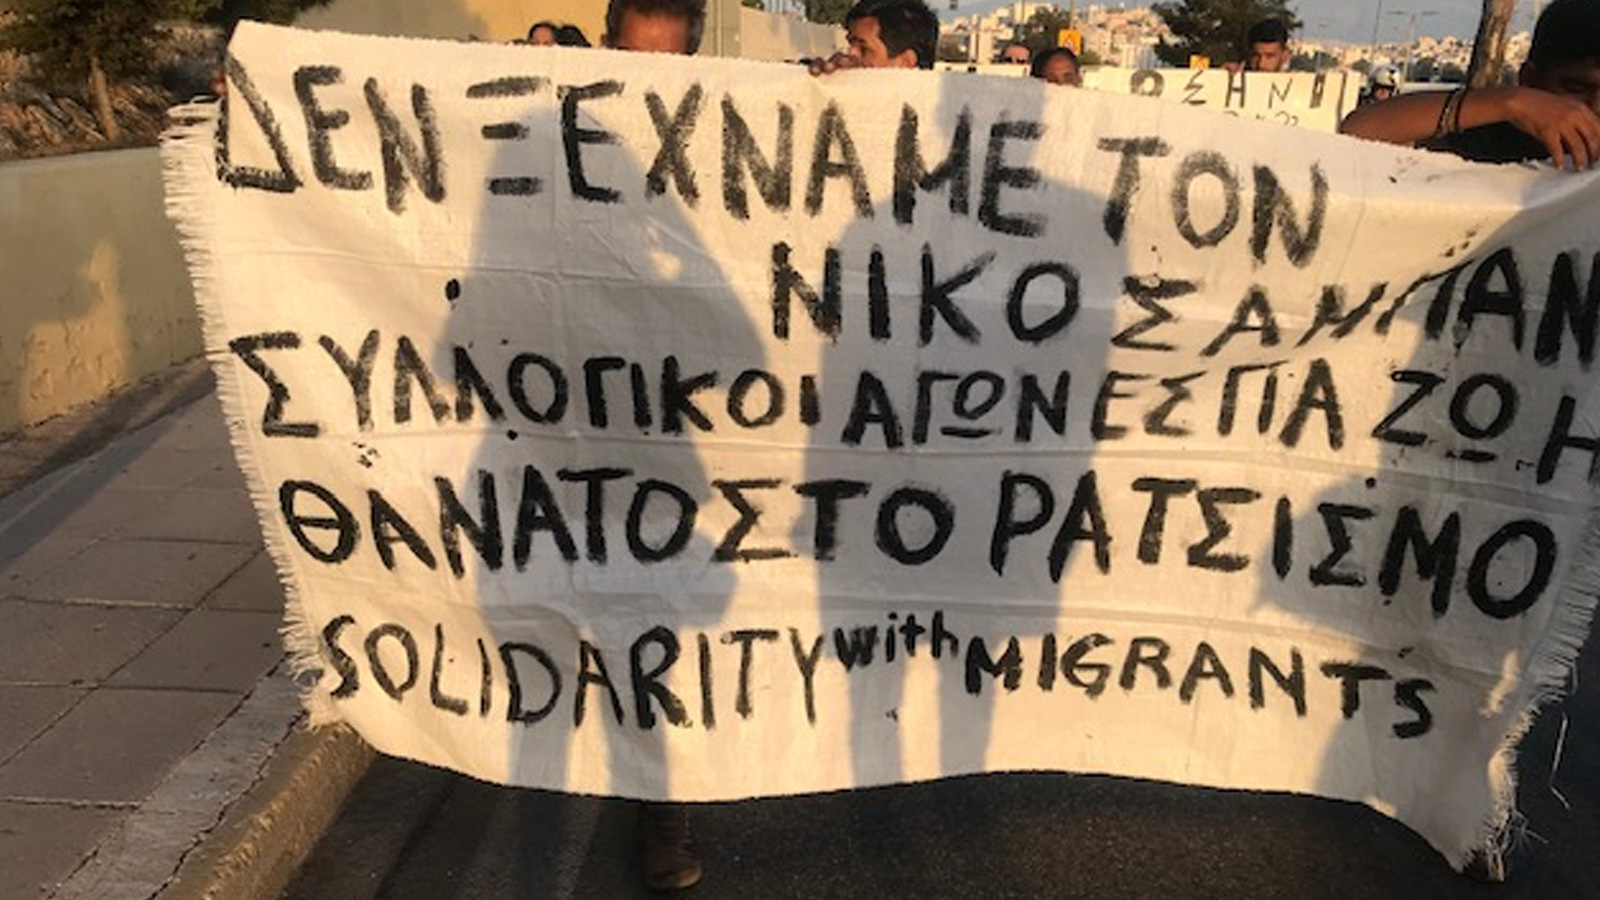 ΔΕΝ ΞΕΧΝΑΜΕ ΤΟΝ
ΝΙΚΟ ΣΑΜΠΑΝ
ΣΥΛΛΟΓΙΚΟΙ ΑΓΩΝΕΣ ΓΙΑ ΖΩΗ
ΘΑΝΑΤΟ ΣΤΟ ΡΑΤΣΙΣΜΟ
SOLIDARITY with MIGRANTS